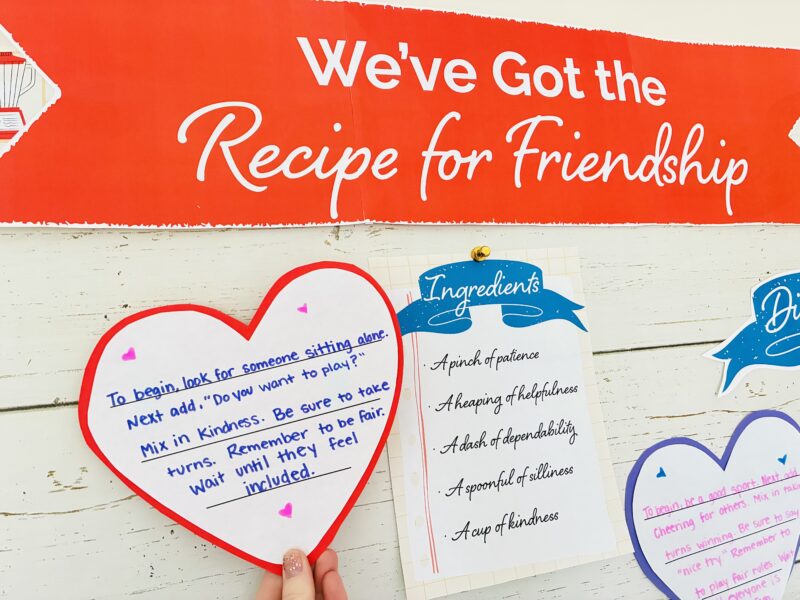 We've Got the
Recipe for Friendship
To begin, look for someone sitting alone.
Next add, "Do you want to play?"
Mix in Kindness. Be sure to take
turns. Remember to be fair.
Wait until they feel
included.
Ingredients
· A pinch of patience
· A heaping of helpfulness
· A dash of dependability
· A spoonful of silliness
· A cup of kindness
Di
To begin, be a good sport. Next add
Cheering for others. Mix in taking
turns winning. Be sure to say
"nice try." Remember to
to play fair rules. Wait
everyone is